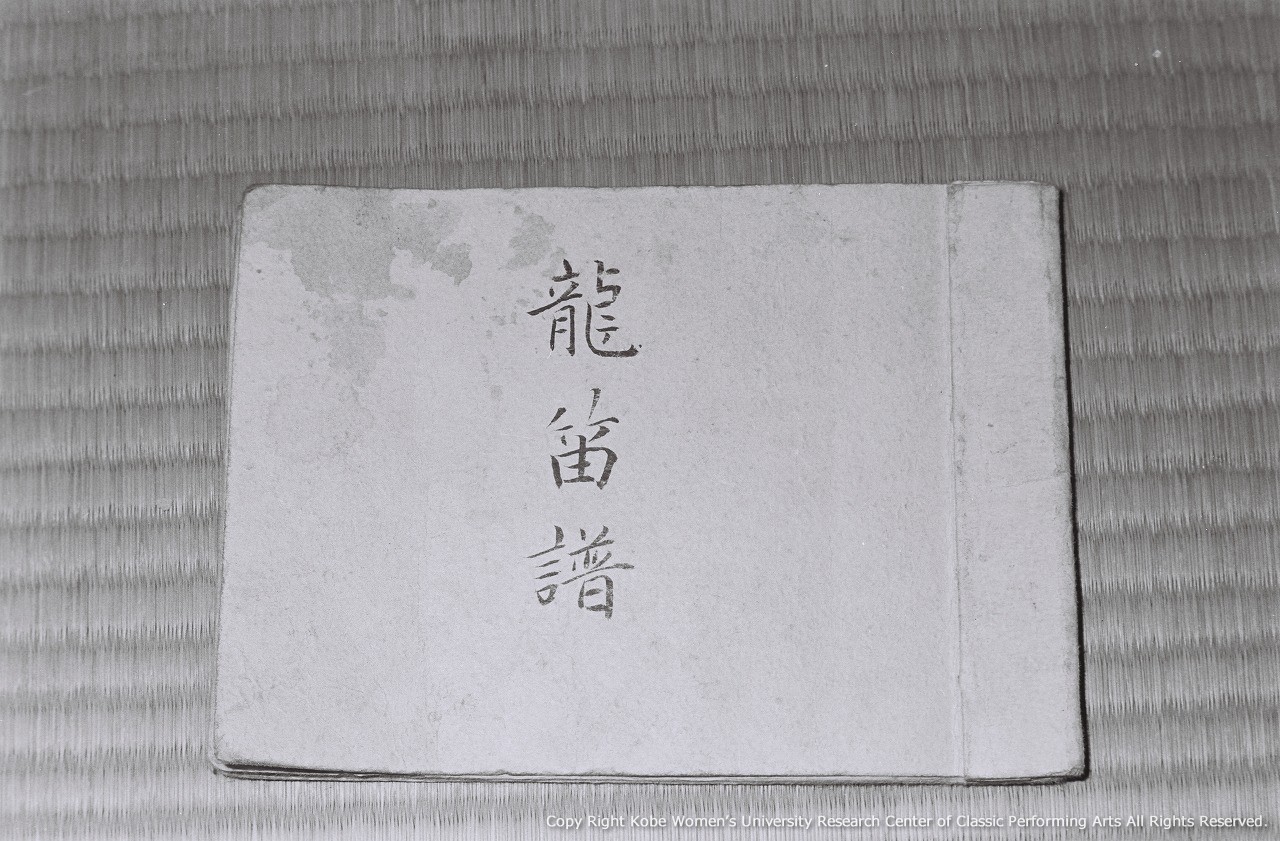 龍笛譜
Copy Right Kobe Women's University Research Center of Classic Performing Arts All Rights Reserved.